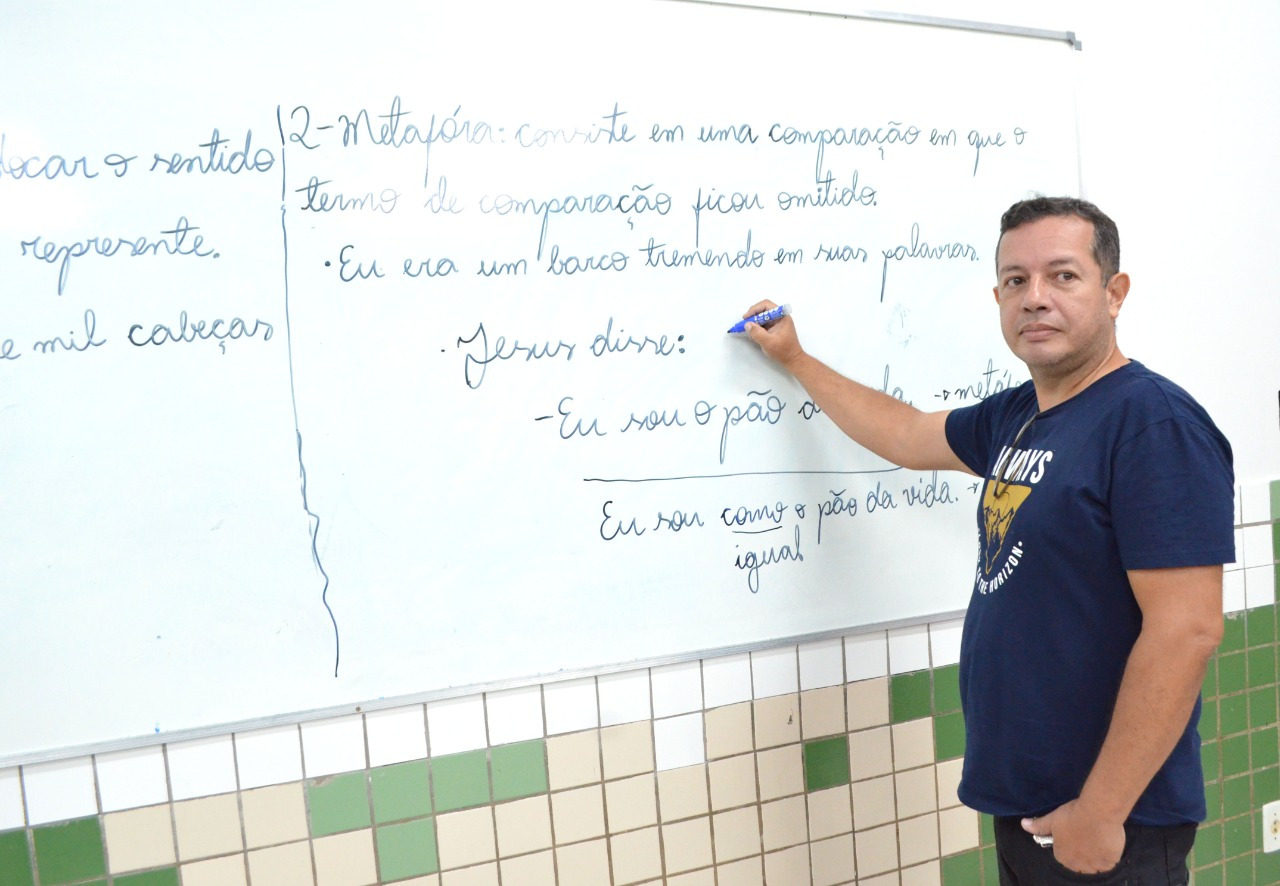 o sentido
represente.
mil cabeças
2-Metafóra: consiste em uma comparação em que o
termo de comparação ficou omitido.
·Eu era um barco tremendo em suas palavras.
·Jesus disse:
-Eu sou o pão
Eu sou como o pão da vida.
igual
THE HORIZON